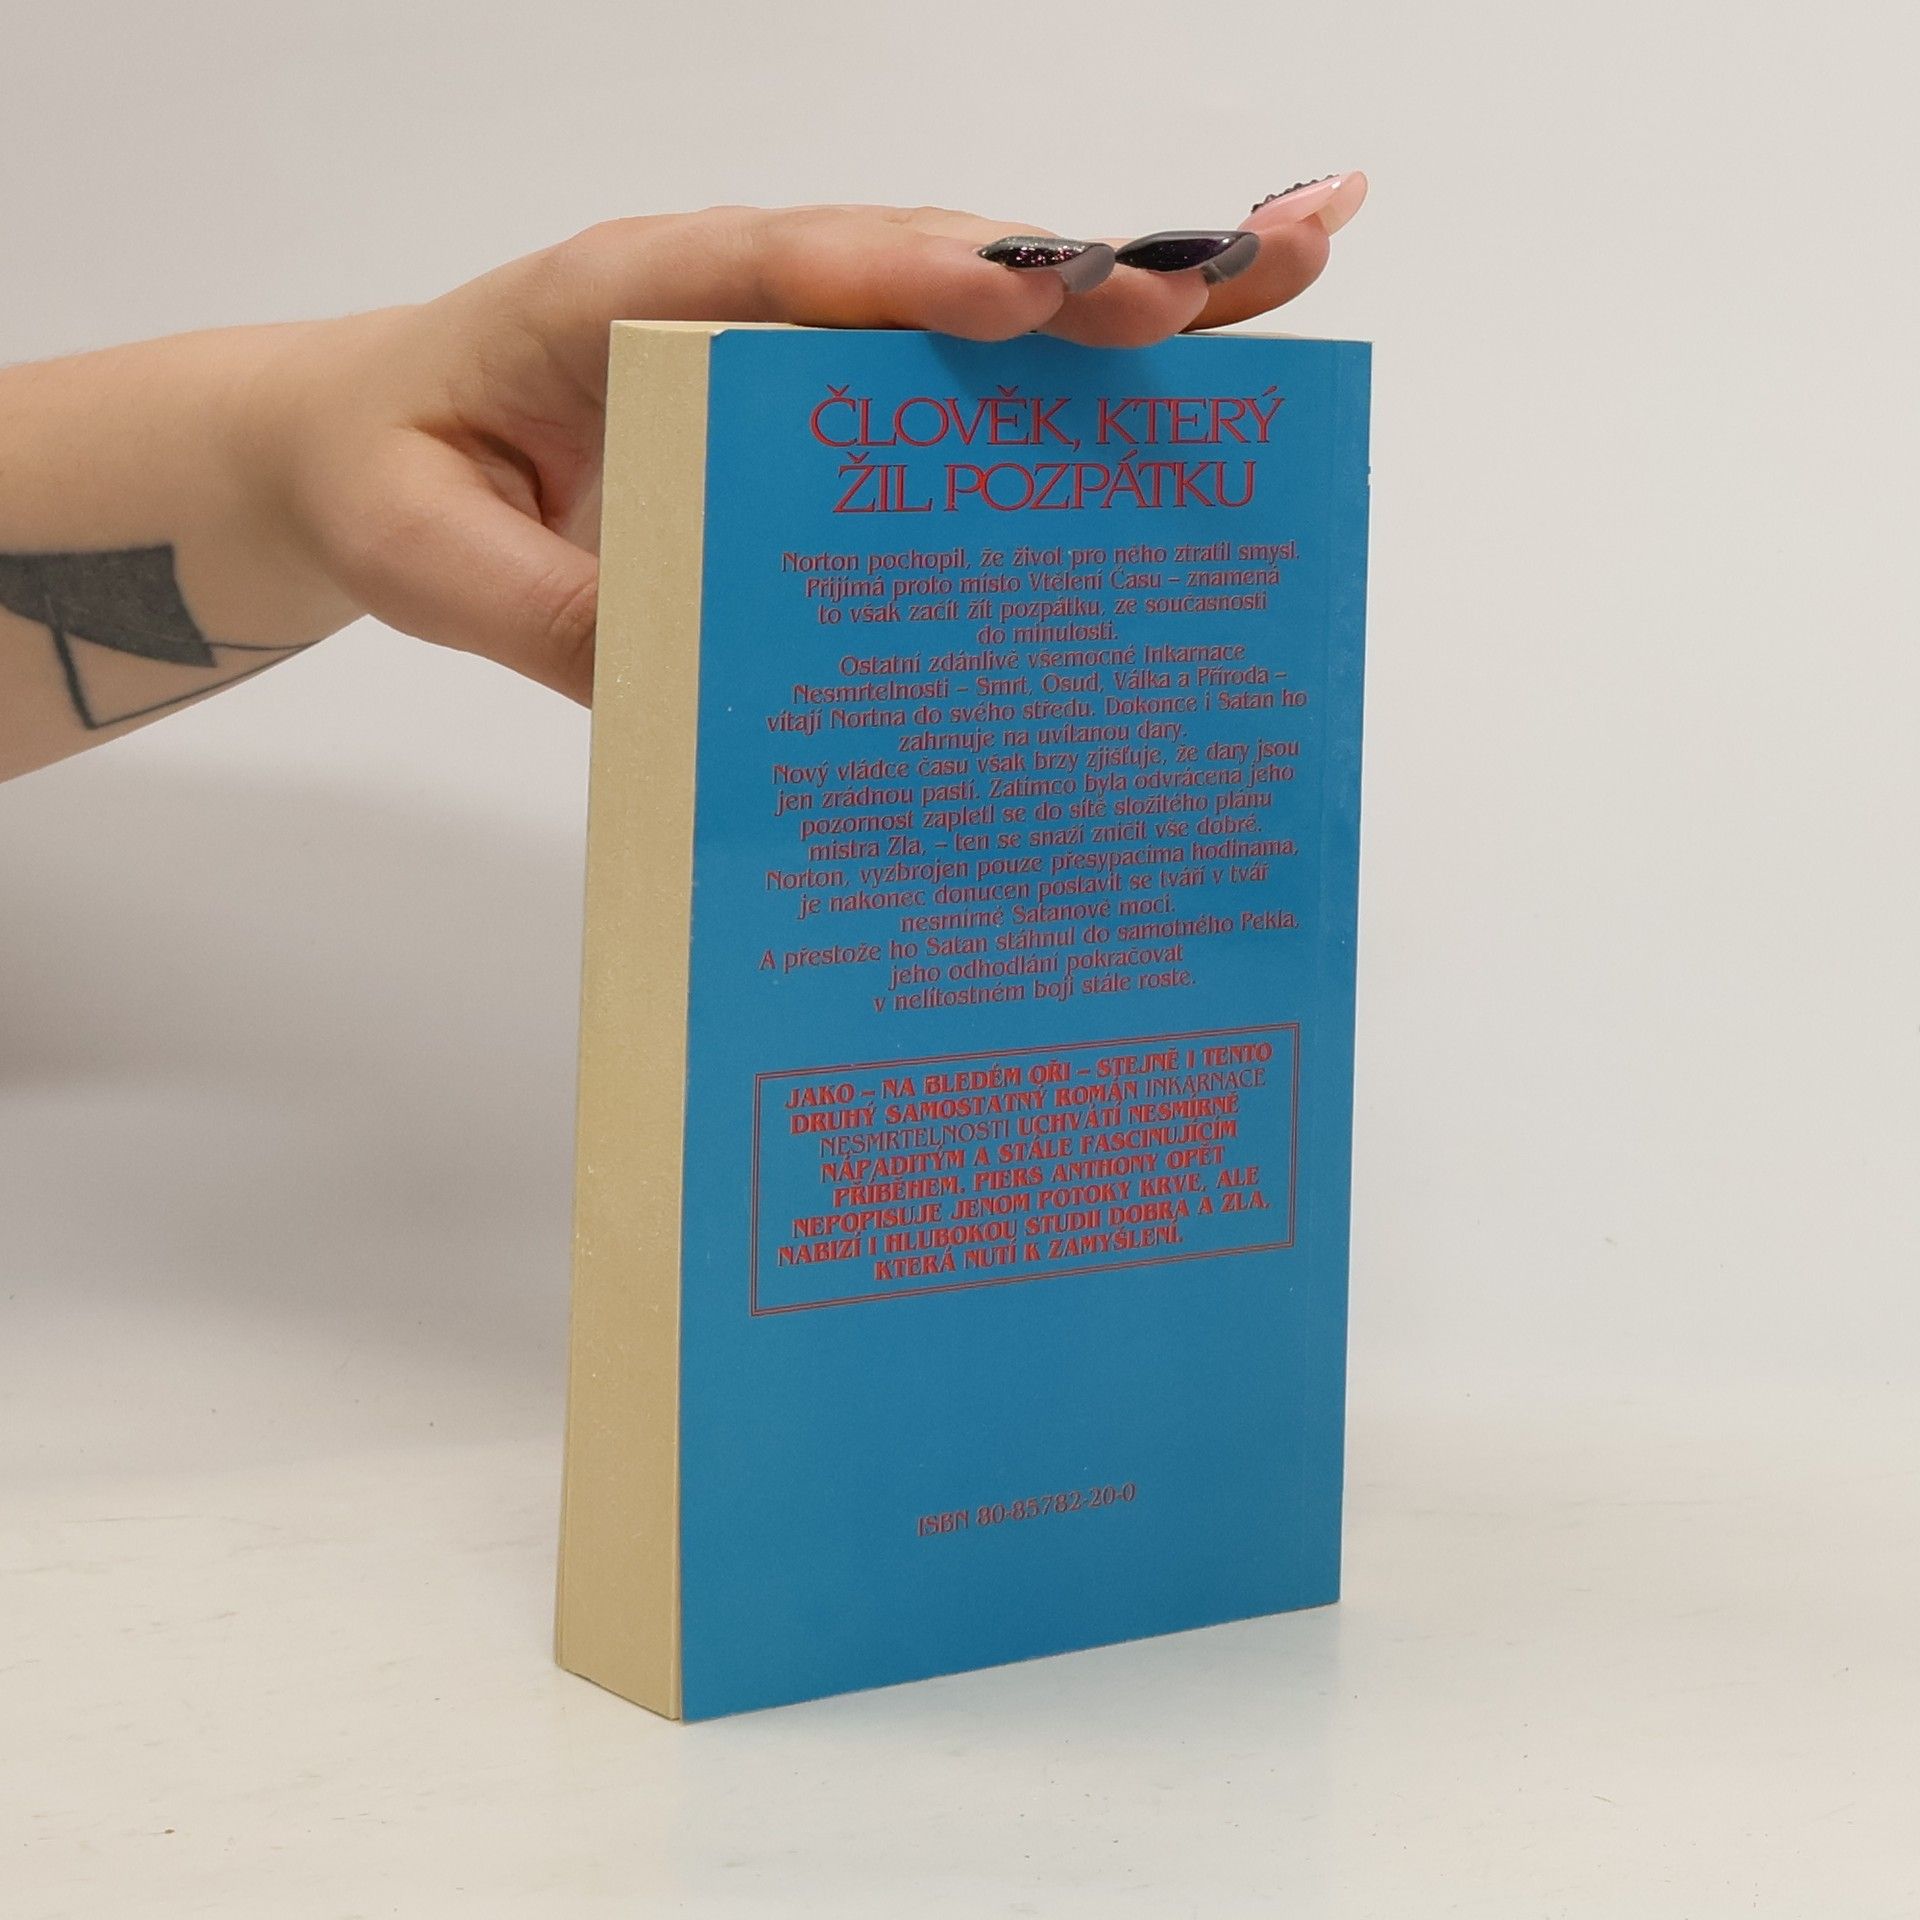 ČLOVĚK, KTERÝ
ŽIL POZPÁTKU
Norton pochopil, že život pro něho ztratil smysl.
Přijímá proto místo Vtělení Času – znamená
to však začít žít pozpátku, ze současnosti
do minulosti.
Ostatní zdánlivě všemocné Inkarnace
Nesmrtelnosti – Smrt, Osud, Válka a Příroda –
vítají Nortna do svého středu. Dokonce i Satan ho
zahrnuje na uvítanou dary.
Nový vládce času však brzy zjišťuje, že dary jsou
jen zrádnou pastí. Zatímco byla odvrácena jeho
pozornost zapletl se do sítě složitého plánu
mistra Zla, – ten se snaží zničit vše dobré.
Norton, vyzbrojen pouze přesypacíma hodinama,
je nakonec donucen postavit se tváří v tvář
nesmírné Satanově moci.
A přestože ho Satan stáhnul do samotného Pekla,
jeho odhodlání pokračovat
v nelítostném boji stále roste.
JAKO – NA BLEDÉM OŘI – STEJNĚ I TENTO
DRUHÝ SAMOSTATNÝ ROMÁN INKARNACE
NESMRTELNOSTI UCHVÁTÍ NESMÍRNĚ
NÁPADITÝM A STÁLE FASCINUJÍCÍM
PŘÍBĚHEM. PIERS ANTHONY OPĚT
NEPOPISUJE JENOM POTOKY KRVE, ALE
NABIZÍ I HLUBOKOU STUDII DOBRA A ZLA,
KTERÁ NUTÍ K ZAMYŠLENÍ.
ISBN 80-85782-20-0